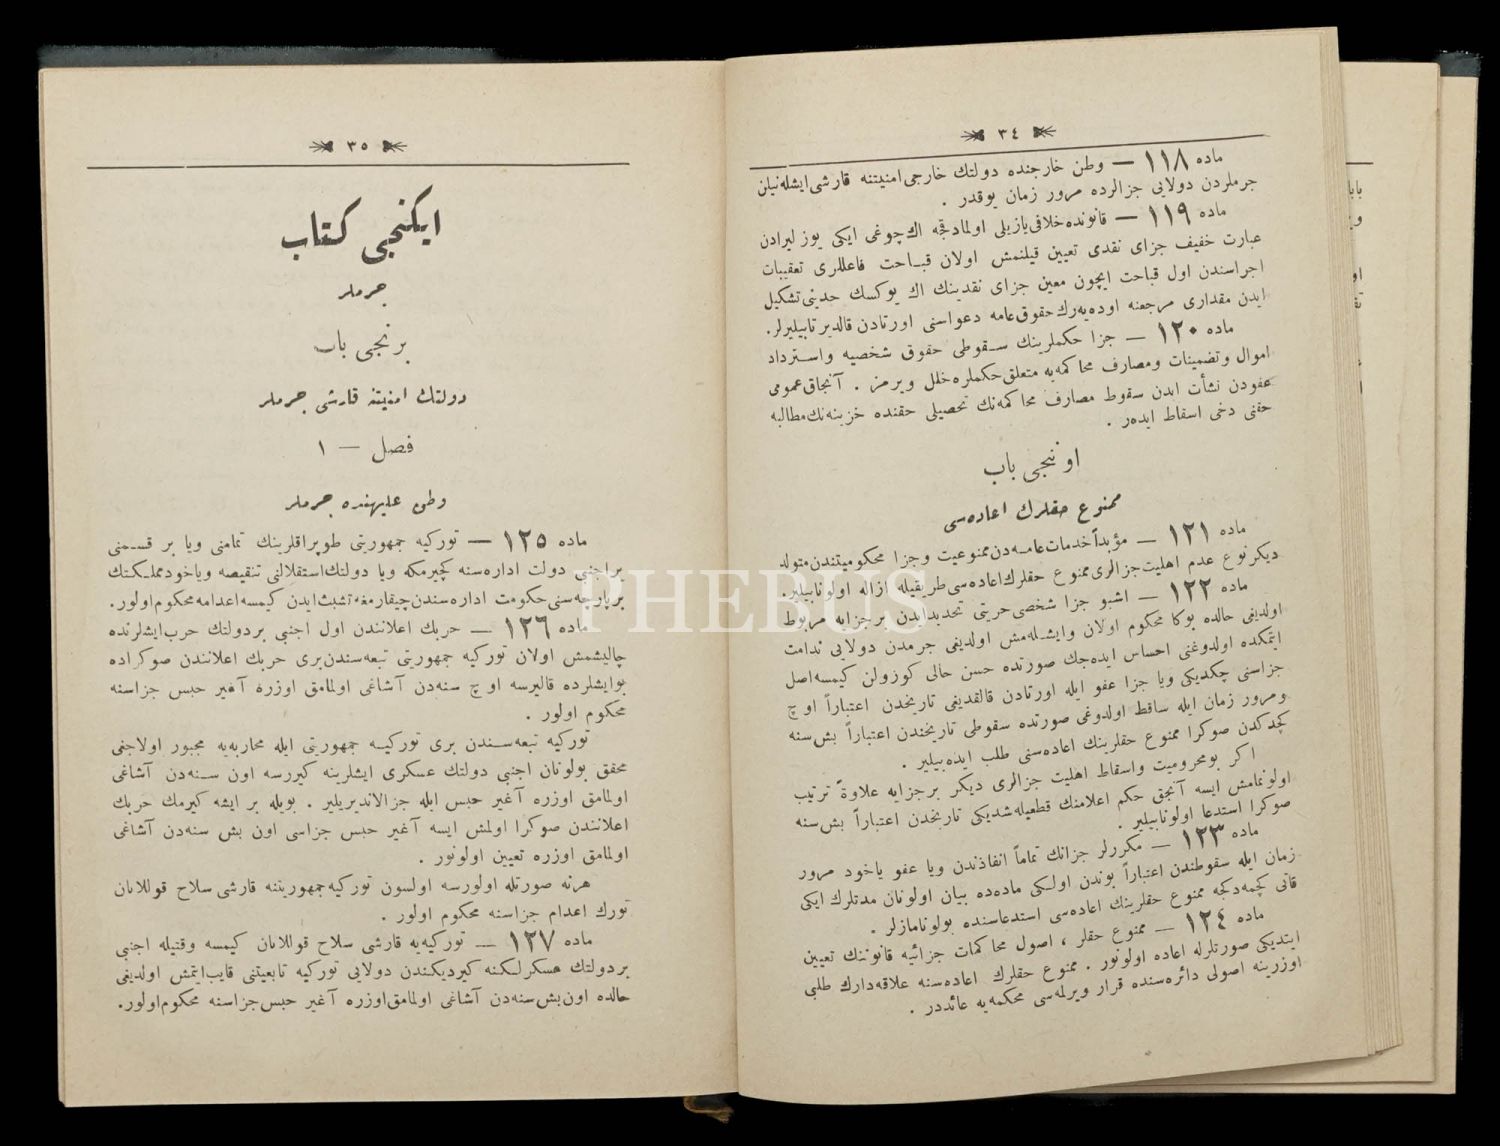 ٣٤
ماده ١١٨ — وطن خارجنده دولتك خارجی امنیتنه قارشی ایشله‌نیلن
جرملردن دولایی جزالرده مرور زمان یوقدر .
ماده ١١٩ — قانونده خلافی یازیلی اولمادقجه اك چوغی ایکی یوز لیرادن
عبارت خفیف جزای نقدی تعیین قیلنمش اولان قباحت فاعللری تعقیبات
اجراسندن اول قباحت ایچون معین جزای نقدینك اك یوکسك حدینی تشکیل
ایدن مقداری مرجعنه اوده‌یه‌رك حقوق عامه دعواسنی اورتادن قالدیرتابیلیرلر.
ماده ١٢٠ — جزا حکملرینك سقوطی حقوق شخصیه و استرداد
اموال و تضمینات ومصارف محاکمه‌یه متعلق حکملره خلل ویرمز . آنجاق عمومی
عفودن نشأت ایدن سقوط مصارف محاکمه‌نك تحصیلی حقنده خزینه‌نك مطالبه
حقنی دخی اسقاط ایده‌ر .
اوننجی باب
ممنوع حقلرك اعاده‌سی
ماده ١٢١ — مؤبداً خدمات عامه‌دن ممنوعیت وجزا محکومیتندن متولد
دیکر نوع عدم اهلیت جزالری ممنوع حقلرك اعاده‌سی طریقیله ازاله اولونابیلیر.
ماده ١٢٢ — اشبو جزا شخصی حریتی تحدید ایدن برجزایه مربوط
اولدیغی حالده بوکا محکوم اولان وایشله‌مش اولدیغی جرمدن دولایی ندامت
ایتمکده اولدوغنی احساس ایده‌جك صورتده حسن حالی کوزولن کیمسه اصل
جزاسنی چکدیکی ویا جزا عفو ایله اورتادن قالقدیغی تاریخدن اعتباراً اوچ
ومرور زمان ایله ساقط اولدوغی صورتده سقوطی تاریخندن اعتباراً بش سنه
کچدکدن صوکرا ممنوع حقلرینك اعاده‌سنی طلب ایده‌بیلیر .
اکر بومحرومیت واسقاط اهلیت جزالری دیکر برجزایه علاوةً ترتیب
اولونمامش ایسه آنجق حکم اعلامنك قطعیله‌شدیکی تاریخدن اعتباراً بش سنه
صوکرا استدعا اولونابیلیر .
ماده ١٢٣ — مکررلر جزانك تماماً انفاذندن ویا عفو یاخود مرور
زمان ایله سقوطندن اعتباراً بوندن اولکی ماده‌ده بیان اولونان مدتلرك ایکی
قاتی کچمه‌دکجه ممنوع حقلرینك اعاده‌سی استدعاسنده بولونامازلر .
ماده ١٢٤ — ممنوع حقلر ، اصول محاکمات جزائیه قانوننك تعیین
ایتدیکی صورتلرله اعاده اولونور . ممنوع حقلرك اعاده‌سنه علاقه‌دارك طلبی
اوزرینه اصولی دائره‌سنده قرار ویرلمه‌سی محکمه‌یه عائددر .
٣٥
ایکنجی کتاب
جرملر
برنجی باب
دولتك امنیتنه قارشی جرملر
فصل — ١
وطن علیهنده جرملر
ماده ١٢٥ — تورکیه جمهوریتی طوپراقلرینك تمامنی ویا بر قسمنی
براجنبی دولت اداره‌سنه کچیرمکه ویا دولتك استقلالنی تنقیصه ویاخود مملکتك
برپارچه‌سنی حکومت اداره‌سندن چیقارمغه تشبث ایدن کیمسه اعدامه محکوم اولور.
ماده ١٢٦ — حربك اعلانندن اول اجنبی بردولتك حرب ایشلرنده
چالیشمش اولان تورکیه جمهوریتی تبعه‌سندن بری حربك اعلانندن صوکراده
بوایشلرده قالیرسه اوچ سنه‌دن آشاغی اولمامق اوزره آغیر حبس جزاسنه
محکوم اولور .
تورکیه تبعه‌سندن بری تورکیه جمهوریتی ایله محاربه‌یه مجبور اولاجغی
محقق بولونان اجنبی دولتك عسکری ایشلرینه کیررسه اون سنه‌دن آشاغی
اولمامق اوزره آغیر حبس ایله جزالاندیریلیر . بویله بر ایشه کیرمك حربك
اعلانندن صوکرا اولمش ایسه آغیر حبس جزاسی اون بش سنه‌دن آشاغی
اولمامق اوزره تعیین اولونور .
هرنه صورتله اولورسه اولسون تورکیه جمهوریتنه قارشی سلاح قوللانان
تورك اعدام جزاسنه محکوم اولور .
ماده ١٢٧ — تورکیه‌یه قارشی سلاح قوللانان کیمسه وقتیله اجنبی
بردولتك عسکرلکنه کیردیکندن دولایی تورکیه تابعیتنی قایب ایتمش اولدیغی
حالده اون بش سنه‌دن آشاغی اولمامق اوزره آغیر حبس جزاسنه محکوم اولور.
PHEBUS